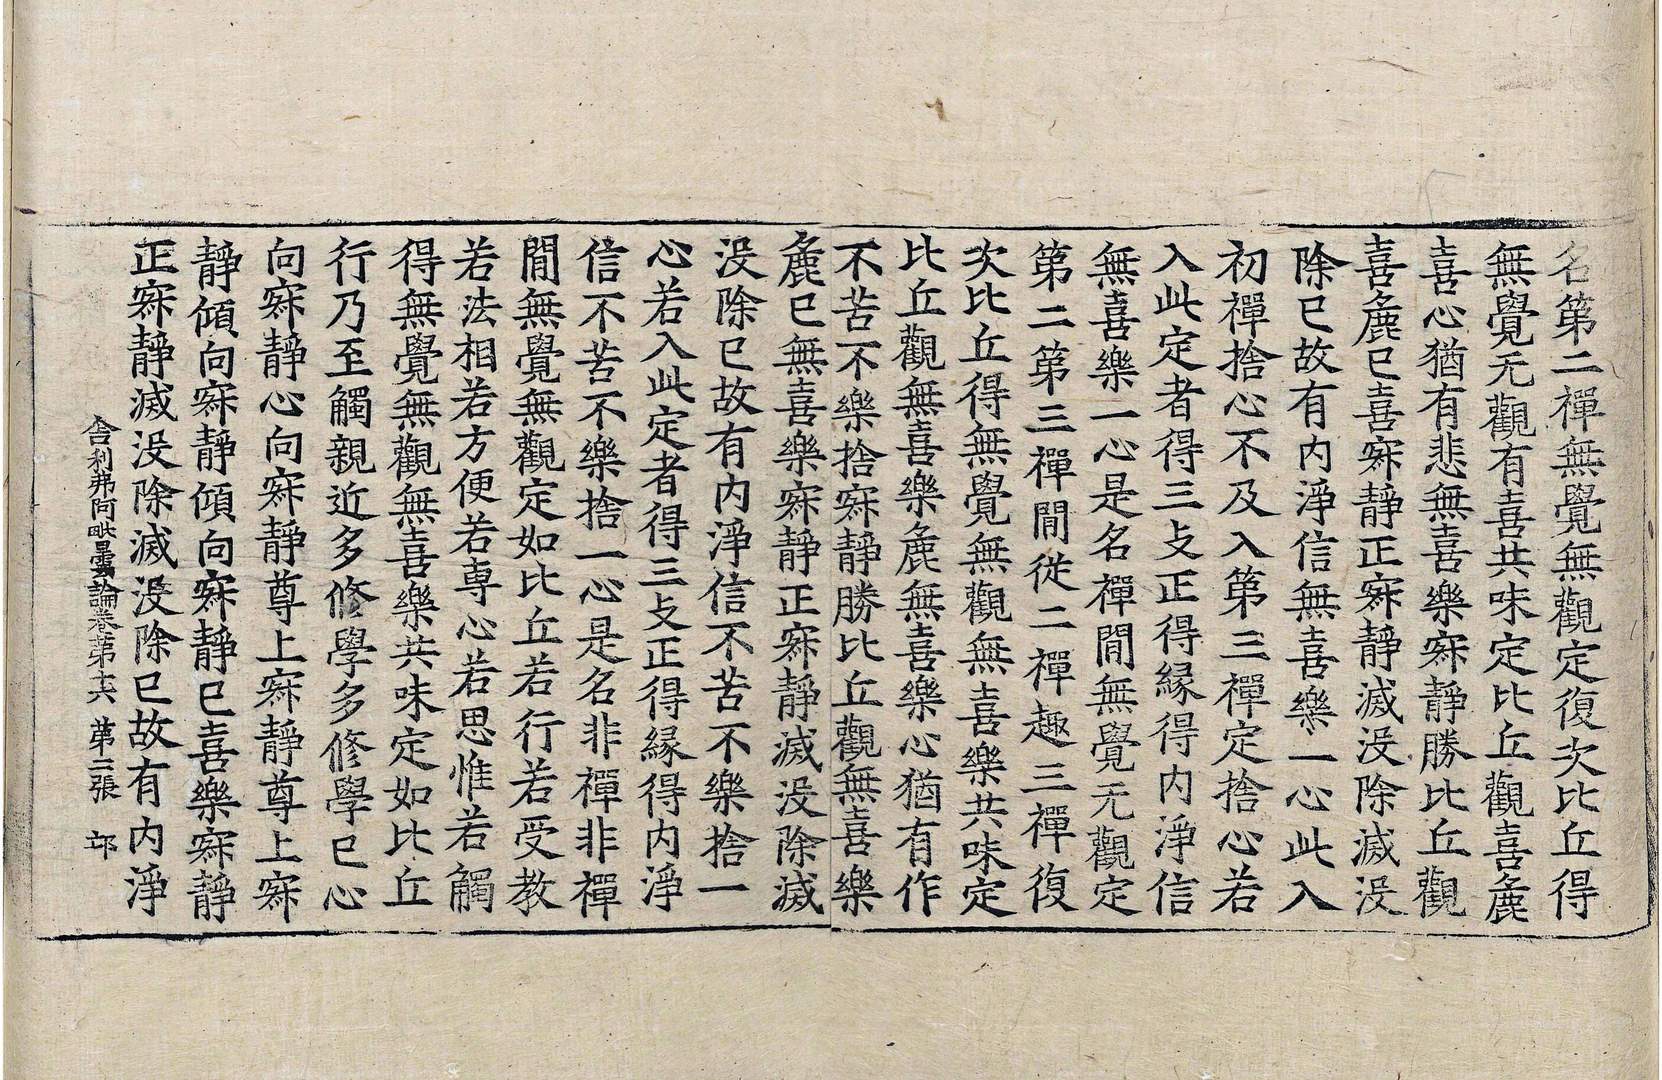 名第二禪無覺無觀定復次比丘得
無覺无觀有喜共味定比丘觀喜麁
喜心猶有悲無喜樂寂靜勝比丘觀
喜麁已喜寂靜正寂靜滅没除滅没
除已故有内淨信無喜樂一心此入
初禪捨心不及入第三禪定捨心若
入此定者得三攴正得緣得内淨信
無喜樂一心是名禪間無覺无觀定
第二第三禪間從二禪趣三禪復
次比丘得無覺無觀無喜樂共味定
比丘觀無喜樂麁無喜樂心猶有作
不苦不樂捨寂靜勝比丘觀無喜樂
麁已無喜樂寂靜正寂靜滅没除滅
没除已故有内淨信不苦不樂捨一
心若入此定者得三攴正得緣得内淨
信不苦不樂捨一心是名非禪非禪
間無覺無觀定如比丘若行若受教
若法相若方便若專心若思惟若觸
得無覺無觀無喜樂共味定如比丘
行乃至觸親近多修學多修學已心
向寂靜心向寂靜尊上寂靜尊上寂
靜傾向寂靜傾向寂靜已喜樂寂靜
正寂靜滅没除滅没除已故有内淨
舍利弗阿毗曇論卷第十六 第二張